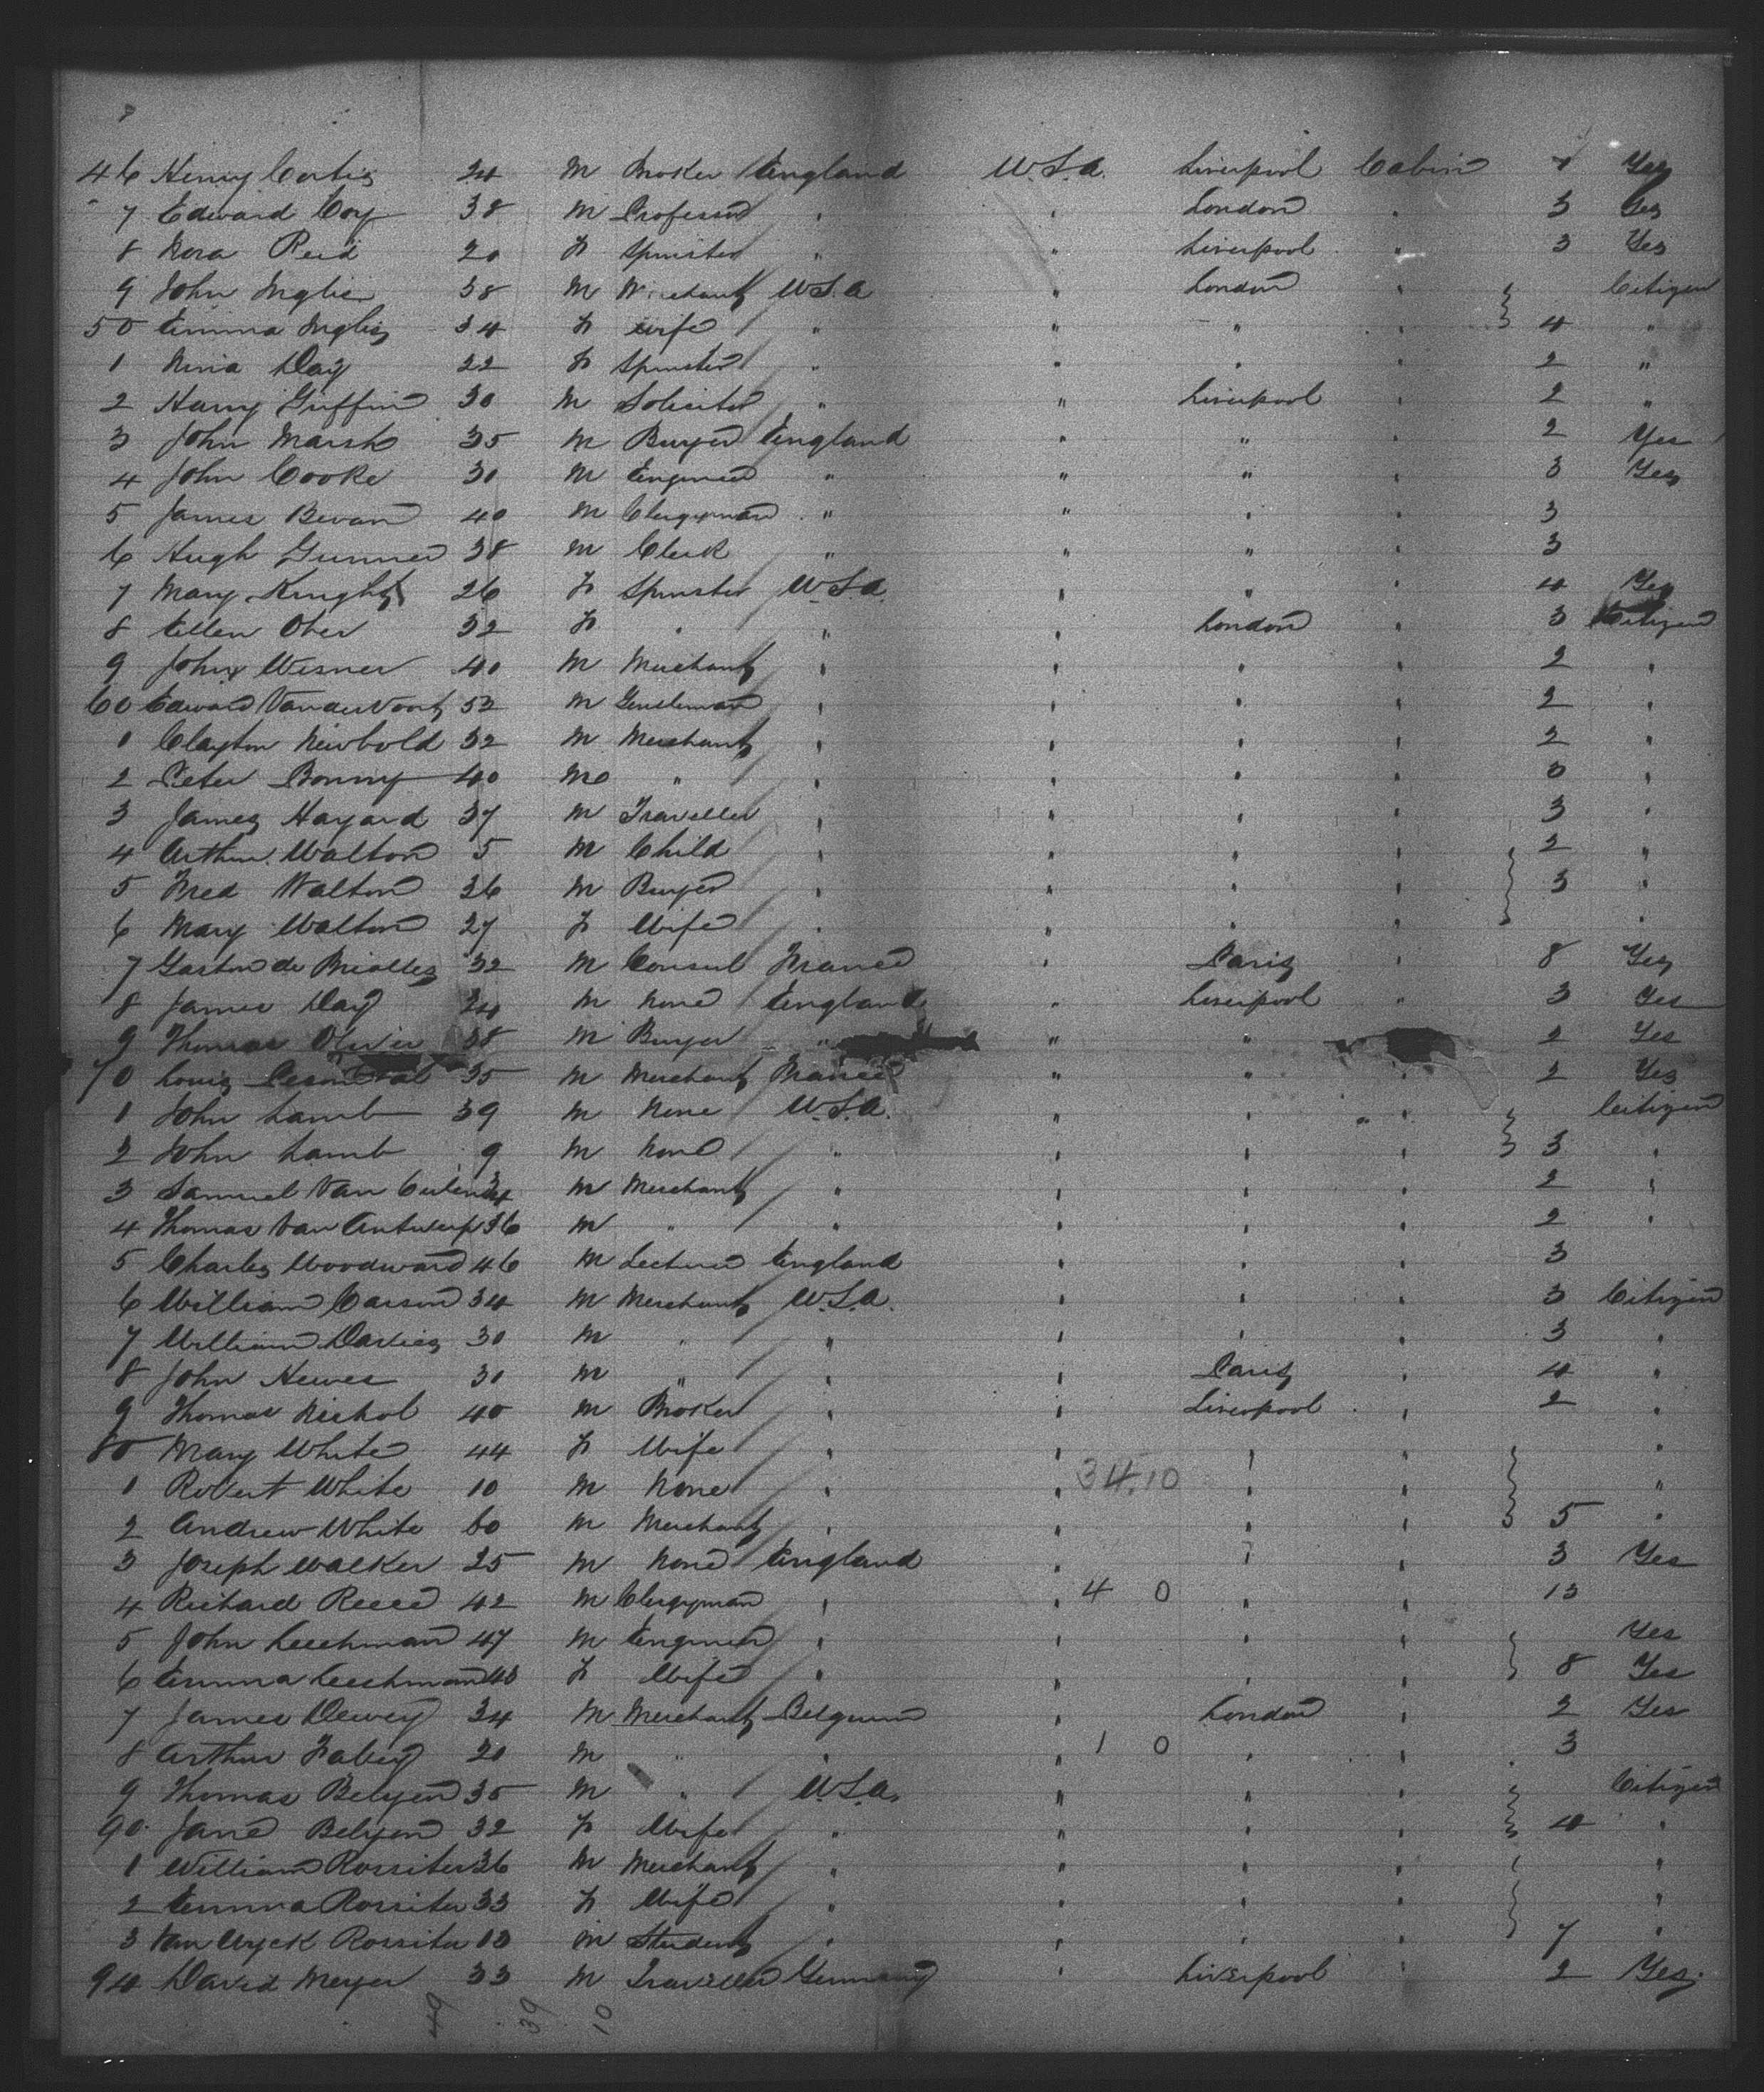 46 Henry Curtis 24 M Broker England U.S.A. Liverpool Cabin Yes
7 Edward Coy 38 M Professor " " London " 3 Yes
8 Nora Reid 20 F Spinster " " Liverpool " 3 Yes
9 John Inglis 38 M Merchant U.S.A " London " Citizen
50 Emma Inglis 34 F Wife " " " " 4 "
1 Nina Day 22 F Spinster " " " " 2 "
2 Harry Griffin 30 M Solicitor " " Liverpool " 2 "
3 John Marsh 35 M Buyer England " " " 2 Yes
4 John Cooke 30 M Engineer " " " " 3 Yes
5 James Bevan 40 M Clergyman " " " " 3
6 Hugh Gunner 38 M Clerk " " " " 3
7 Mary Knight 26 F Spinster U.S.A. " " " 4 Yes
8 Ellen Ober 32 F " " " London " 3 Citizen
9 John Wisner 40 M Merchant " " " " 2 "
60 Edward VanderVoort 52 M Gentleman " " " " 2 "
1 Clayton Newbold 32 M Merchant " " " " 2 "
2 Peter Bonny 40 M " " " " " 3 "
3 James Hayard 37 M Traveller " " " " 3 "
4 Arthur Walton 5 M Child " " " " 2 "
5 Fred Walton 36 M Buyer " " " " 3 "
6 Mary Walton 27 F Wife " " " " "
7 Gaston de 32 M Consul France " Paris " 8 Yes
8 James Day 24 M None England " Liverpool " 3 Yes
9 Thomas Oliver 38 M Buyer " " " 2 Yes
70 Louis 35 M Merchant France " " " 2 Yes
1 John Lamb 39 M None U.S.A. " " " Citizen
2 John Lamb 9 M None " " " " 3 "
3 Samuel Van 34 M Merchant " " " " 2 "
4 Thomas Van Antwerp 36 M " " " " " 2 "
5 Charles Woodward 46 M Lecturer England " " " 3
6 William Carson 34 M Merchant U.S.A. " " " 3 Citizen
7 William Davies 30 M " " " " " 3 "
8 John Hewes 30 M " " " Paris " 4 "
9 Thomas Nichol 40 M Broker " " Liverpool " 2 "
80 Mary White 44 F Wife " " " " "
1 Robert White 10 M None " " 34.10 " " "
2 Andrew White 60 M Merchant " " " " 5 "
3 Joseph Walker 25 M None England " " " 3 Yes
4 Richard Reece 42 M Clergyman " " 4 0 " " 13
5 John Leechman 47 M Engineer " " " " Yes
6 Emma Leechman 43 F Wife " " " " 8 Yes
7 James Dewey 34 M Merchant Belgium " London " 2 Yes
8 Arthur 20 M " " " 1 0 " " 3
9 Thomas Belyen 35 M " U.S.A. " " " Citizen
90 Jane Belyen 32 F Wife " " " " 4 "
1 William Rossiter 36 M Merchant " " " " "
2 Emma Rossiter 33 F Wife " " " " "
3 Van Wyck Rossiter 13 M Student " " " " 7 "
94 David Meyer 33 M Traveller Germany " Liverpool " 2 Yes
49 39 10